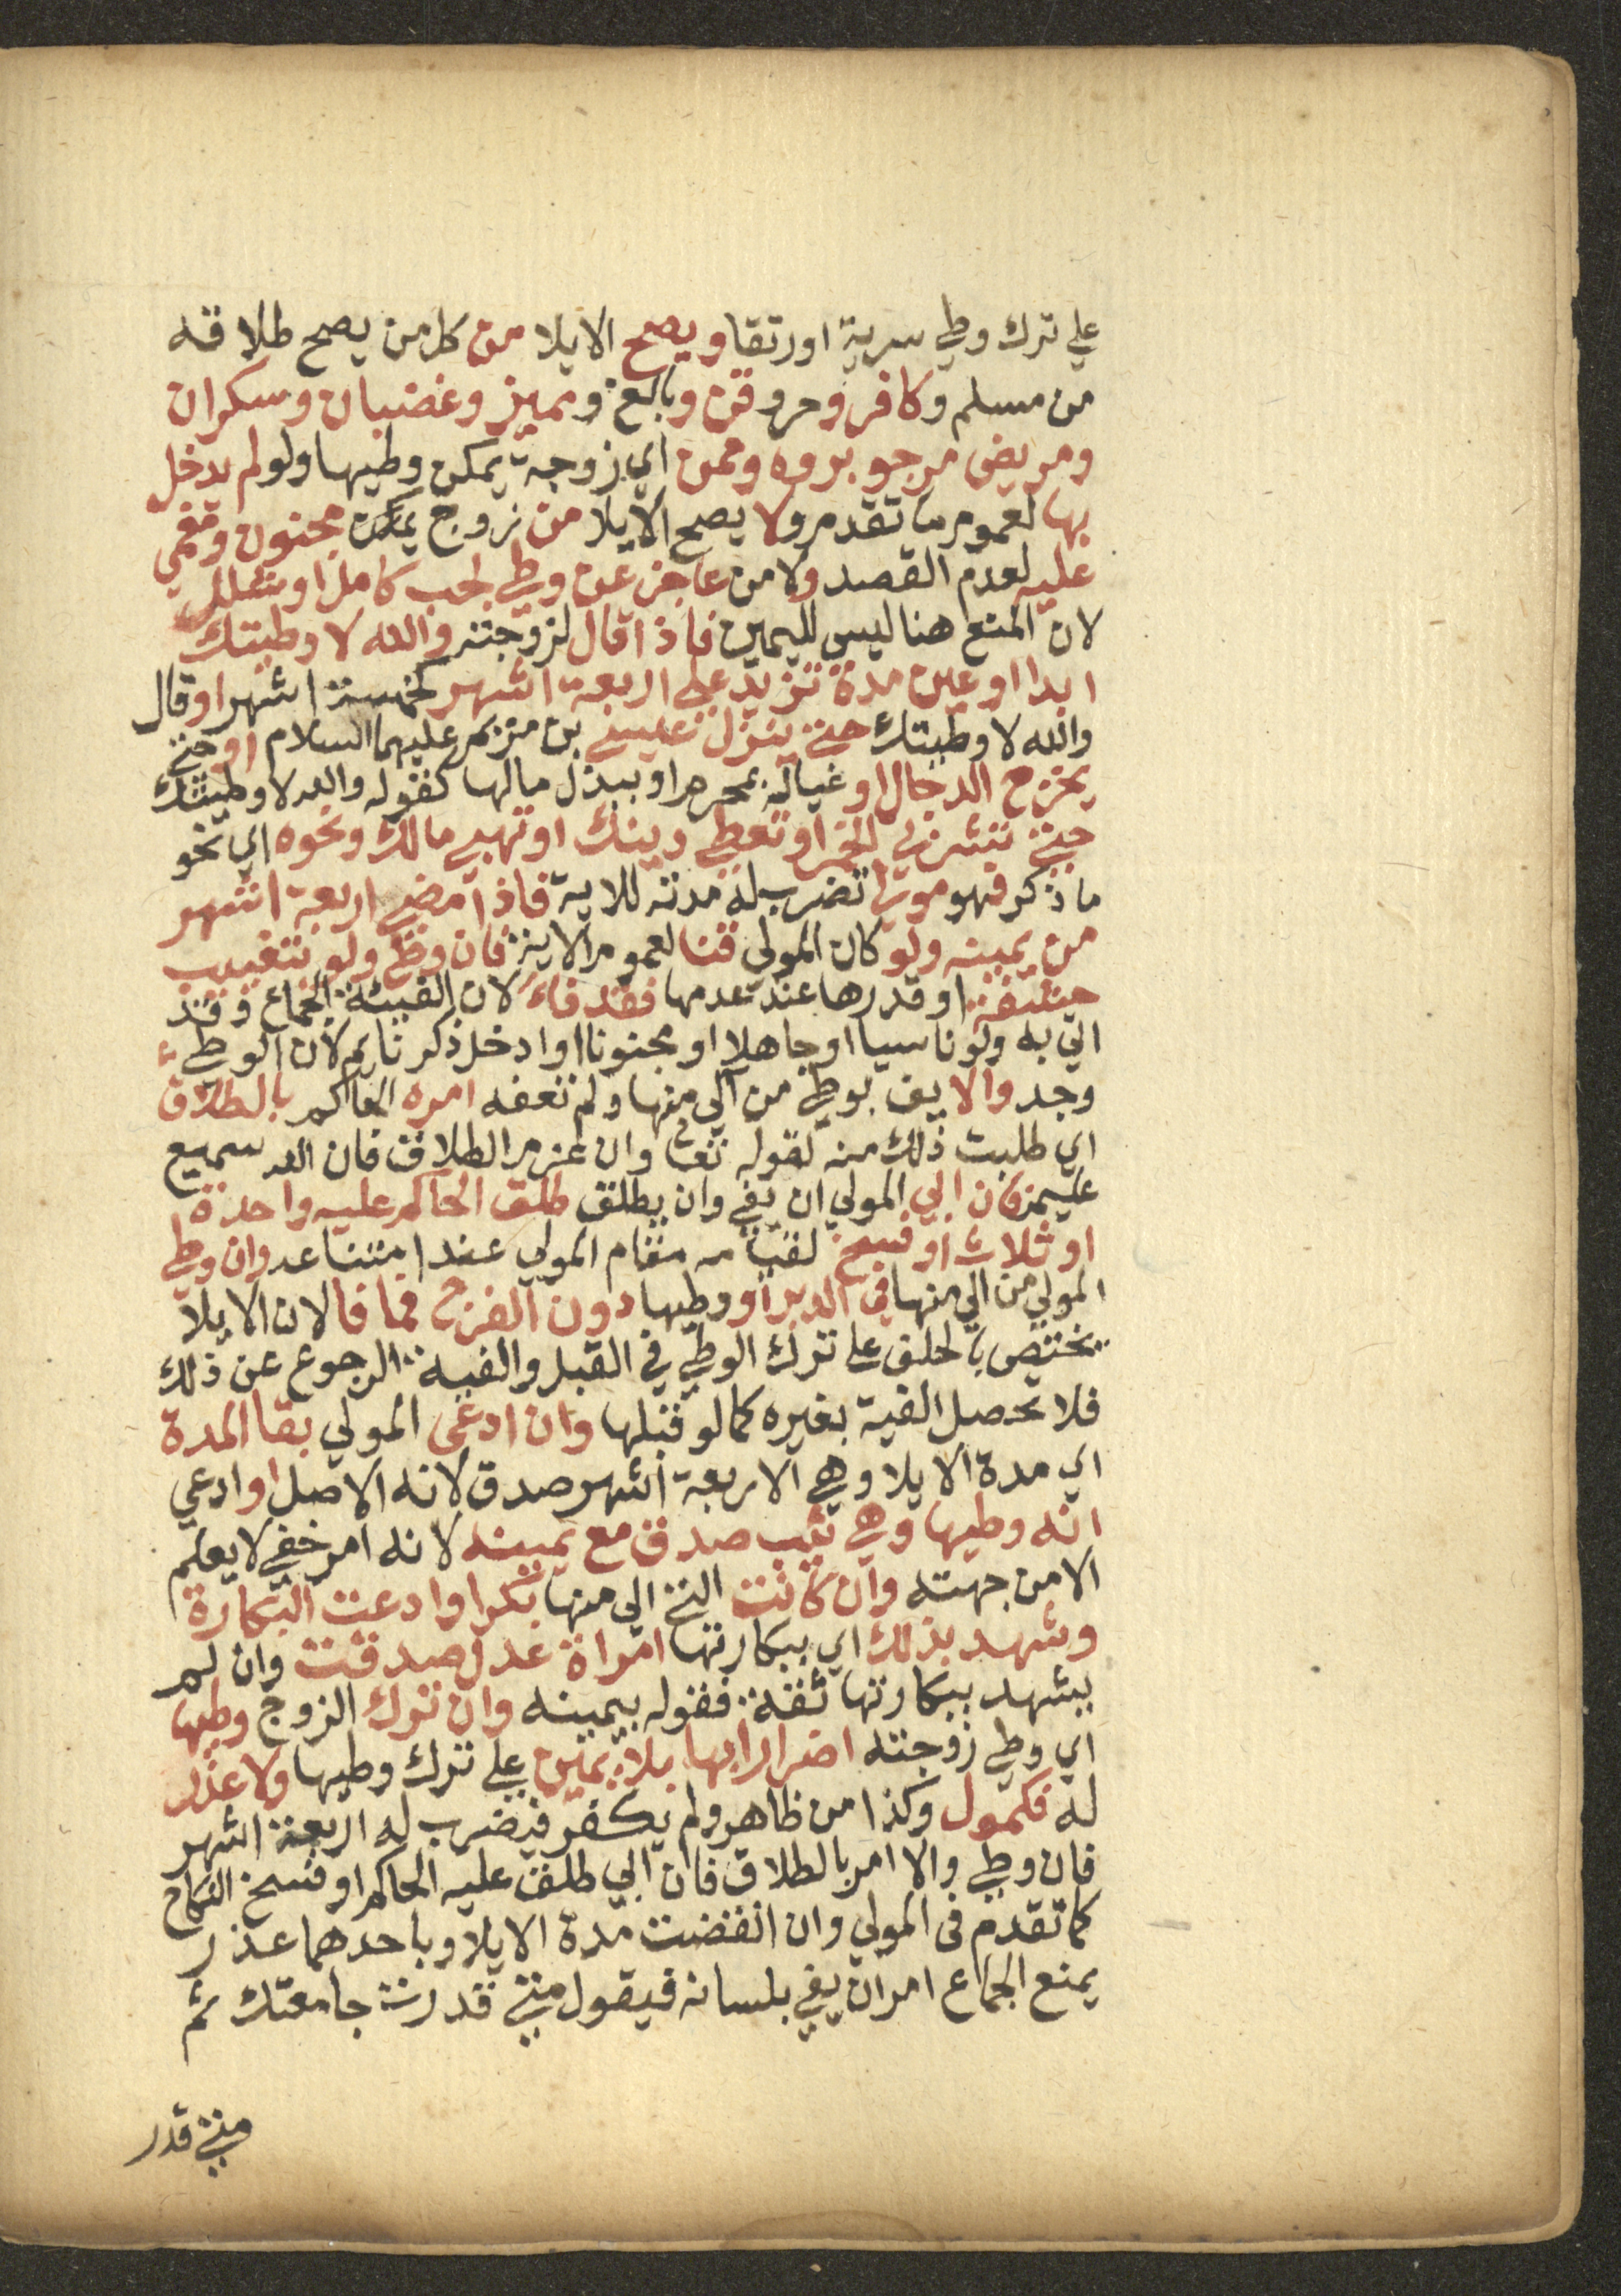 علي ترك وطي سرية اورتقا ويصح الايلا من كل من يصح طلاقه
من مسلم وكافر وحر وقن وبالغ ومميز وغضبان وسكران
ومريض مرجو بروه وممن اي زوجة يمكن وطيها ولو لم يدخل
بها لعموم ما تقدم ولا يصح الايلا من زوج يمكن مجنون ومغمي
عليه لعدم القصد ولا من عاجز عن وطي لجب كامل او شلل
لان المنع هنا ليس لليمين فاذا قال لزوجته والله لا وطيتك
ابدا او عين مدة تزيد علي اربعة اشهر كخمسة اشهر او قال
والله لا وطيتك حتي ينزل عيسي بن مريم عليهما السلام او حتي
يخرج الدجال او غياله بمحرم او ببذل مالها كقوله والله لا وطيتك
حتي تشربي الخمر او تعطي دينك او تهبي مالك ونحوه اي نحو
ما ذكر فهو مول تضرب له مدته للاية فاذا مضي اربعة اشهر
من يمينه ولو كان المولي قنا لعموم الاية فان وطي ولو بتغييب
حشفة او قدرها عند عدمها فقد فاء لان الفيئة الجماع وقد
اتي به ولو ناسيا او جاهلا او مجنونا او ادخل ذكر نايم لان الوطي
وجد والا يف بوطي من الي منها ولم تعفه امره الحاكم بالطلاق
اي طلبت ذلك منه لقوله تعالي وان عزم الطلاق فان الله سميع
عليم فان ابي المولي ان يفي وان يطلق طلق الحاكم عليه واحدة
او ثلاث او فسخ لقيامه مقام المولي عند امتناعه وان وطي
المولي من الي منها في الدبر او وطيها دون الفرج فما فا لان الايلا
يختص بالحلف علي ترك الوطي في القبل والفية الرجوع عن ذلك
فلا تحصل الفية بغيره كما لو قبلها وان ادعى المولي بقا المدة
اي مدة الايلا وهي الاربعة اشهر صدق لانه الاصل او ادعي
انه وطيها وهي ثيب صدق مع يمينه لانه امر خفي لا يعلم
الا من جهته وان كانت التي الي منها بكرا وادعت البكارة
وشهد بذلك اي ببكارتها امراة عدل صدقت وان لم
يشهد ببكارتها ثقة فقوله بيمينه وان ترك الزوج وطيها
اي وطي زوجته اضرارا بها بلا يمين علي ترك وطيها ولا عذر
له فكمول وكذا من ظاهر ولم يكفر فيضرب له اربعة اشهر
فان وطي والا امر بالطلاق فان ابي طلق عليه الحاكم او فسخ النكاح
كما تقدم في المولي وان انقضت مدة الايلا وباحدهما عذر
يمنع الجماع امر ان يفي بلسانه فيقول متي قدرت جامعتك ثم
متي قدر